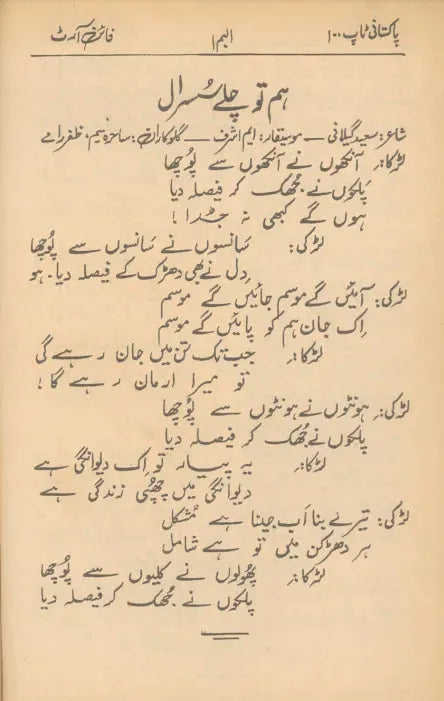 پاکستانی ٹاپ ۱۰۰
البم ا
فائن آرٹ
ہم تو چلے سُسرال
شاعر: سعید گیلانی — موسیقار: ایم اشرف — گلوکاران: سائرہ نسیم، ظفر رامے
لڑکا: آنکھوں نے آنکھوں سے پُوچھا
پَلکوں نے جُھک کر فیصلہ دیا
ہوں گے کبھی نہ جُدا!
لڑکی: سَانسوں نے سَانسوں سے پُوچھا
دِل نے بھی دھڑک کے فیصلہ دیا۔ ہو
لڑکی: آئیں گے موسم جائیں گے موسم
اِک جان ہم کو پائیں گے موسم
لڑکا: جب تک تن میں جان رہے گی
تو میرا ارمان رہے گا!
لڑکی: ہونٹوں نے ہونٹوں سے پُوچھا
پلکوں نے جُھک کر فیصلہ دیا
لڑکا: یہ پیار تو اِک دیوانگی ہے
دیوانگی میں چھُپی زندگی ہے
لڑکی: تیرے بنا اَب جینا ہے مُشکل
ہر دھڑکن میں تو ہے شامل
لڑکا: پھُولوں نے کلیوں سے پُوچھا
پلکوں نے جُھک کر فیصلہ دیا